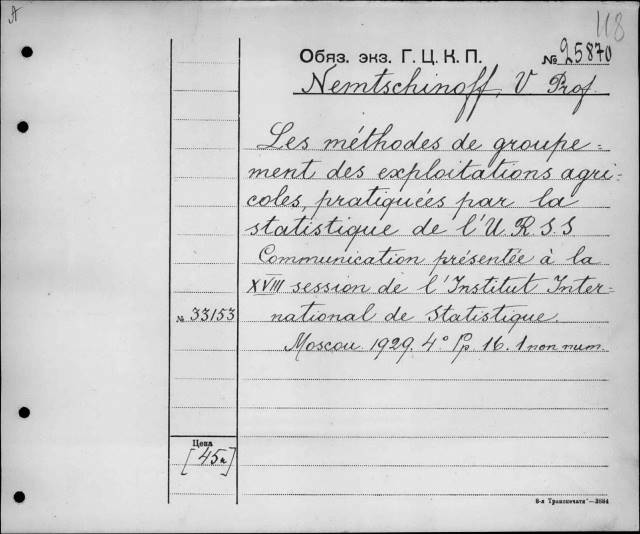 A
118
Обяз. экз. Г. Ц. К. П. № 25870
Nemtschinoff, V Prof.
Les méthodes de groupe=
ment des exploitations agri=
coles, pratiquées par la
statistique de l'U.R.S.S
Communication présentée à la
XVIII session de l'Institut Inter-
№ 33153 national de Statistique.
Moscou. 1929. 4° Pp. 16. 1 non num.
Цена
[45к]
8-я Транспечати"—3884